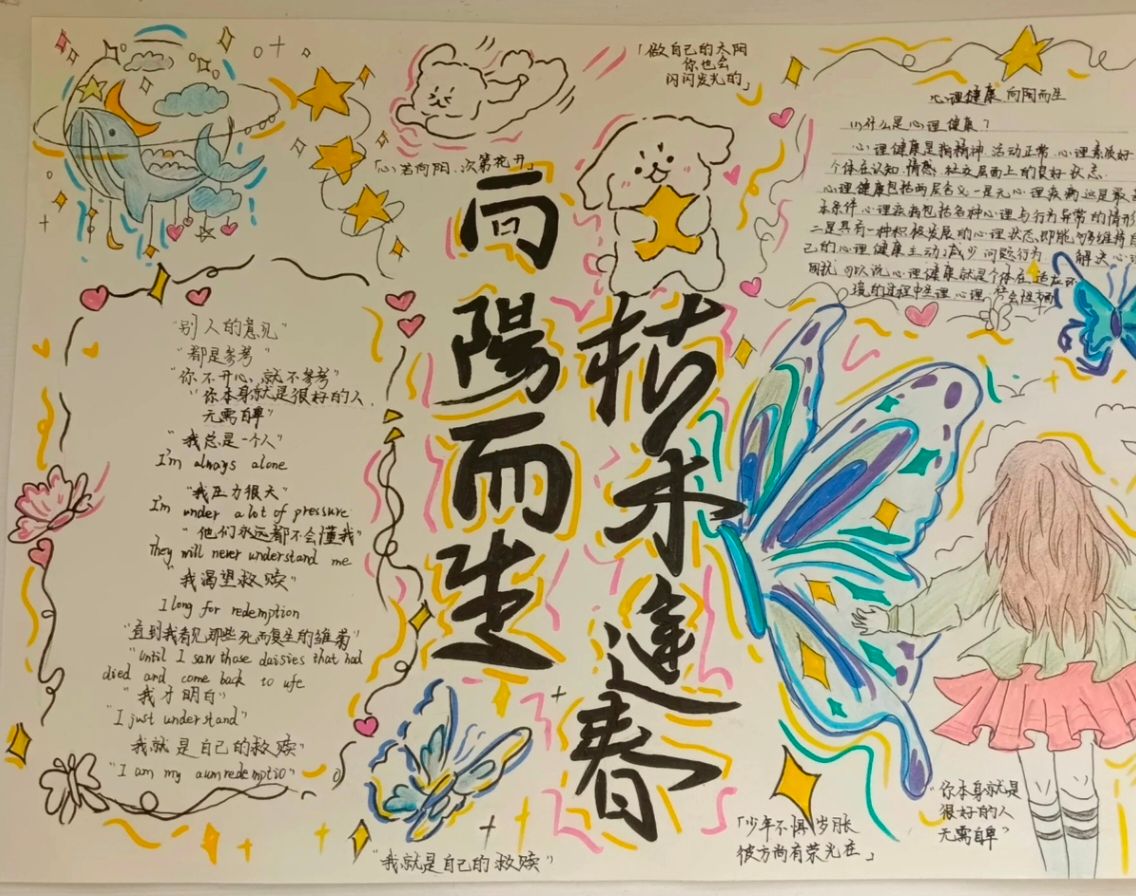 「心若向阳，次第花开」
「做自己的太阳
你也会
闪闪发光的」
心理健康 向阳而生
(1)什么是心理健康？
心理健康是指精神、活动正常、心理素质好
个体在认知、情感、社交层面上的良好状态.
心理健康包括两层含义一是无心理疾病这是最
本条件心理疾病包括各种心理与行为异常的情形
二是具有一种积极发展的心理状态,即能够维持自
己的心理健康主动减少问题行为 解决心理
困扰 可以说心理健康就是个体在适应环
境的过程中生理、心理、社会性方面
向陽而生
枯木逢春
"别人的意见"
"都是参考"
"你不开心,就不参考"
"你本身就是很好的人,
无需自卑"
"我总是一个人"
I'm always alone
"我压力很大"
I'm under a lot of pressure
"他们永远都不会懂我"
They will never understand me
"我渴望救赎"
I long for redemption
"直到我看见那些死而复生的雏菊"
"until I saw those daisies that had
died and come back to life
"我才明白"
"I just understand"
我就是自己的救赎"
"I am my
"我就是自己的救赎"
「少年不惧岁月长
彼方尚有荣光在」
"你本身就是
很好的人
无需自卑"